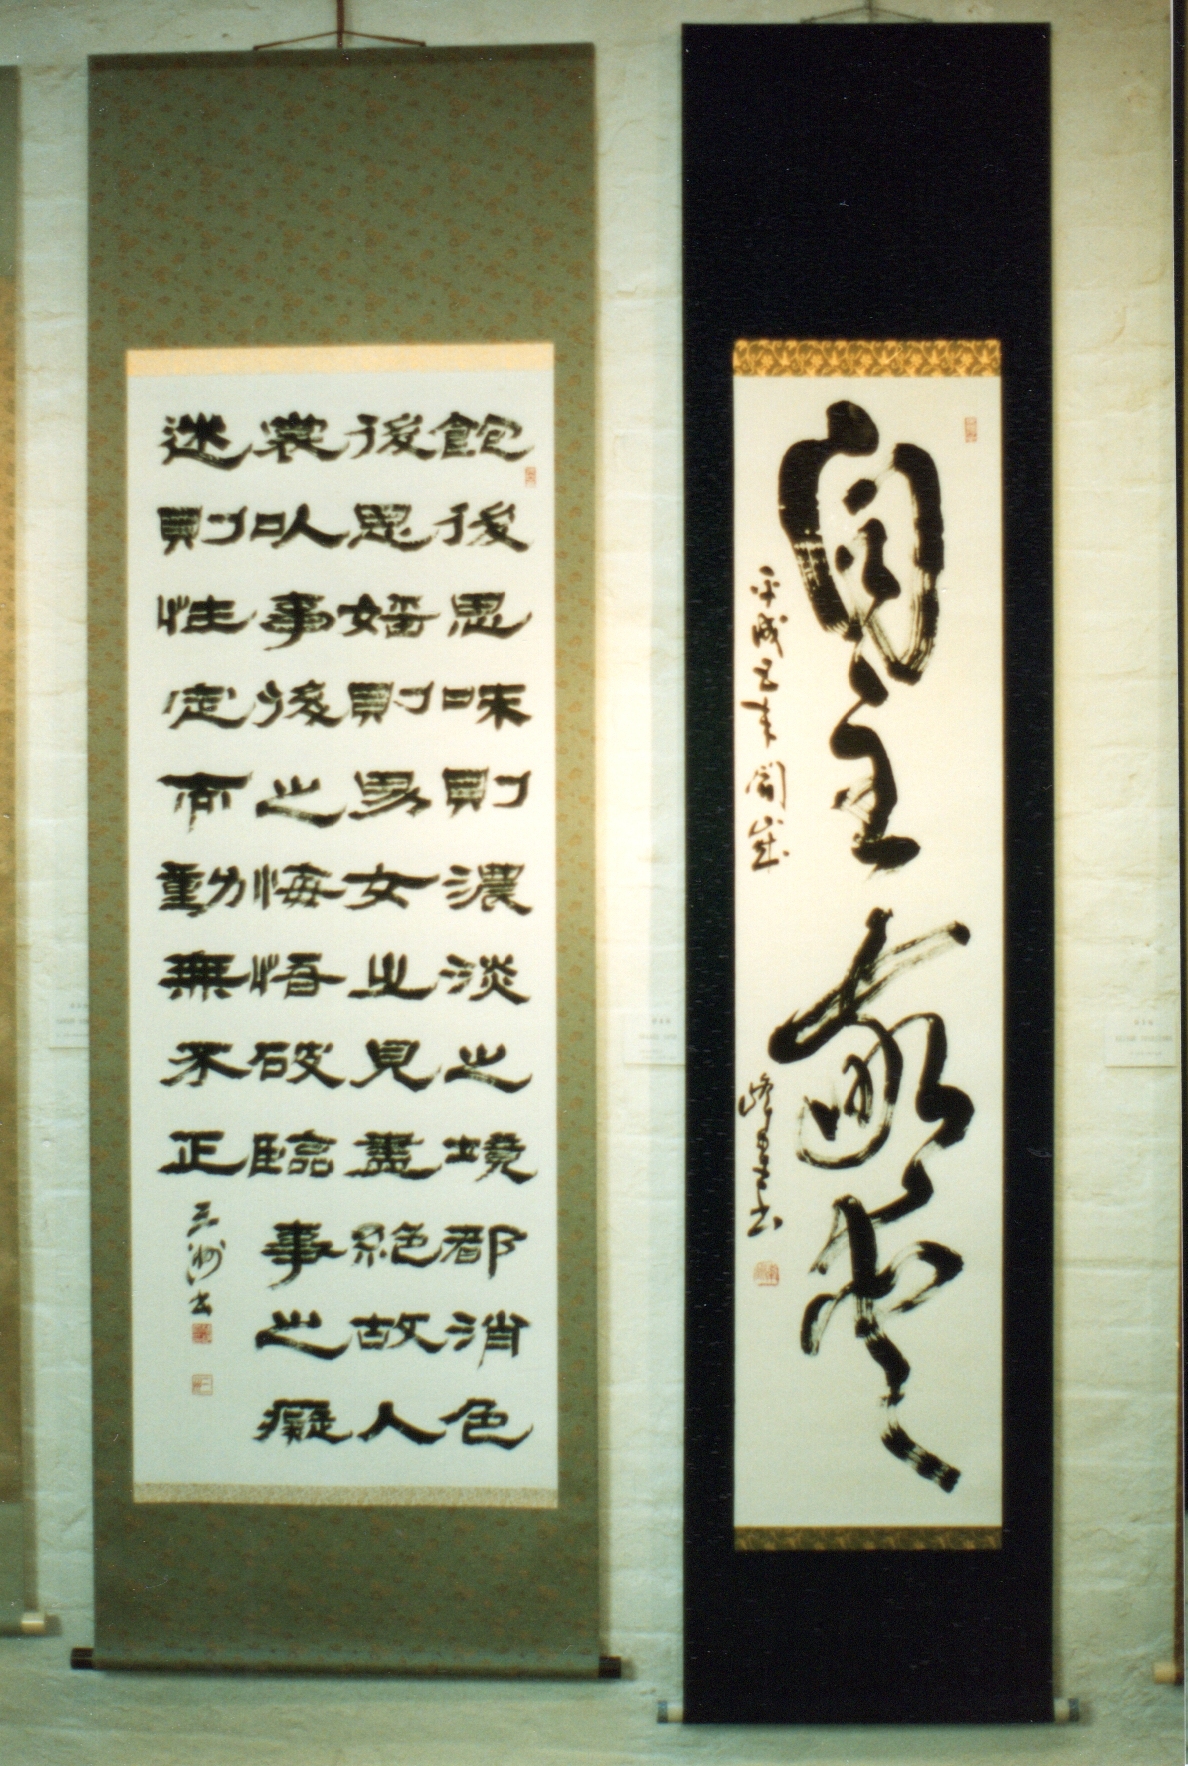 飽後思味則濃淡之境都消色
後思婬則男女之見盡絶故人
裳以事後之悔悟破臨事之癡
迷則性定而動無不正
三洲書
自主
平成五年